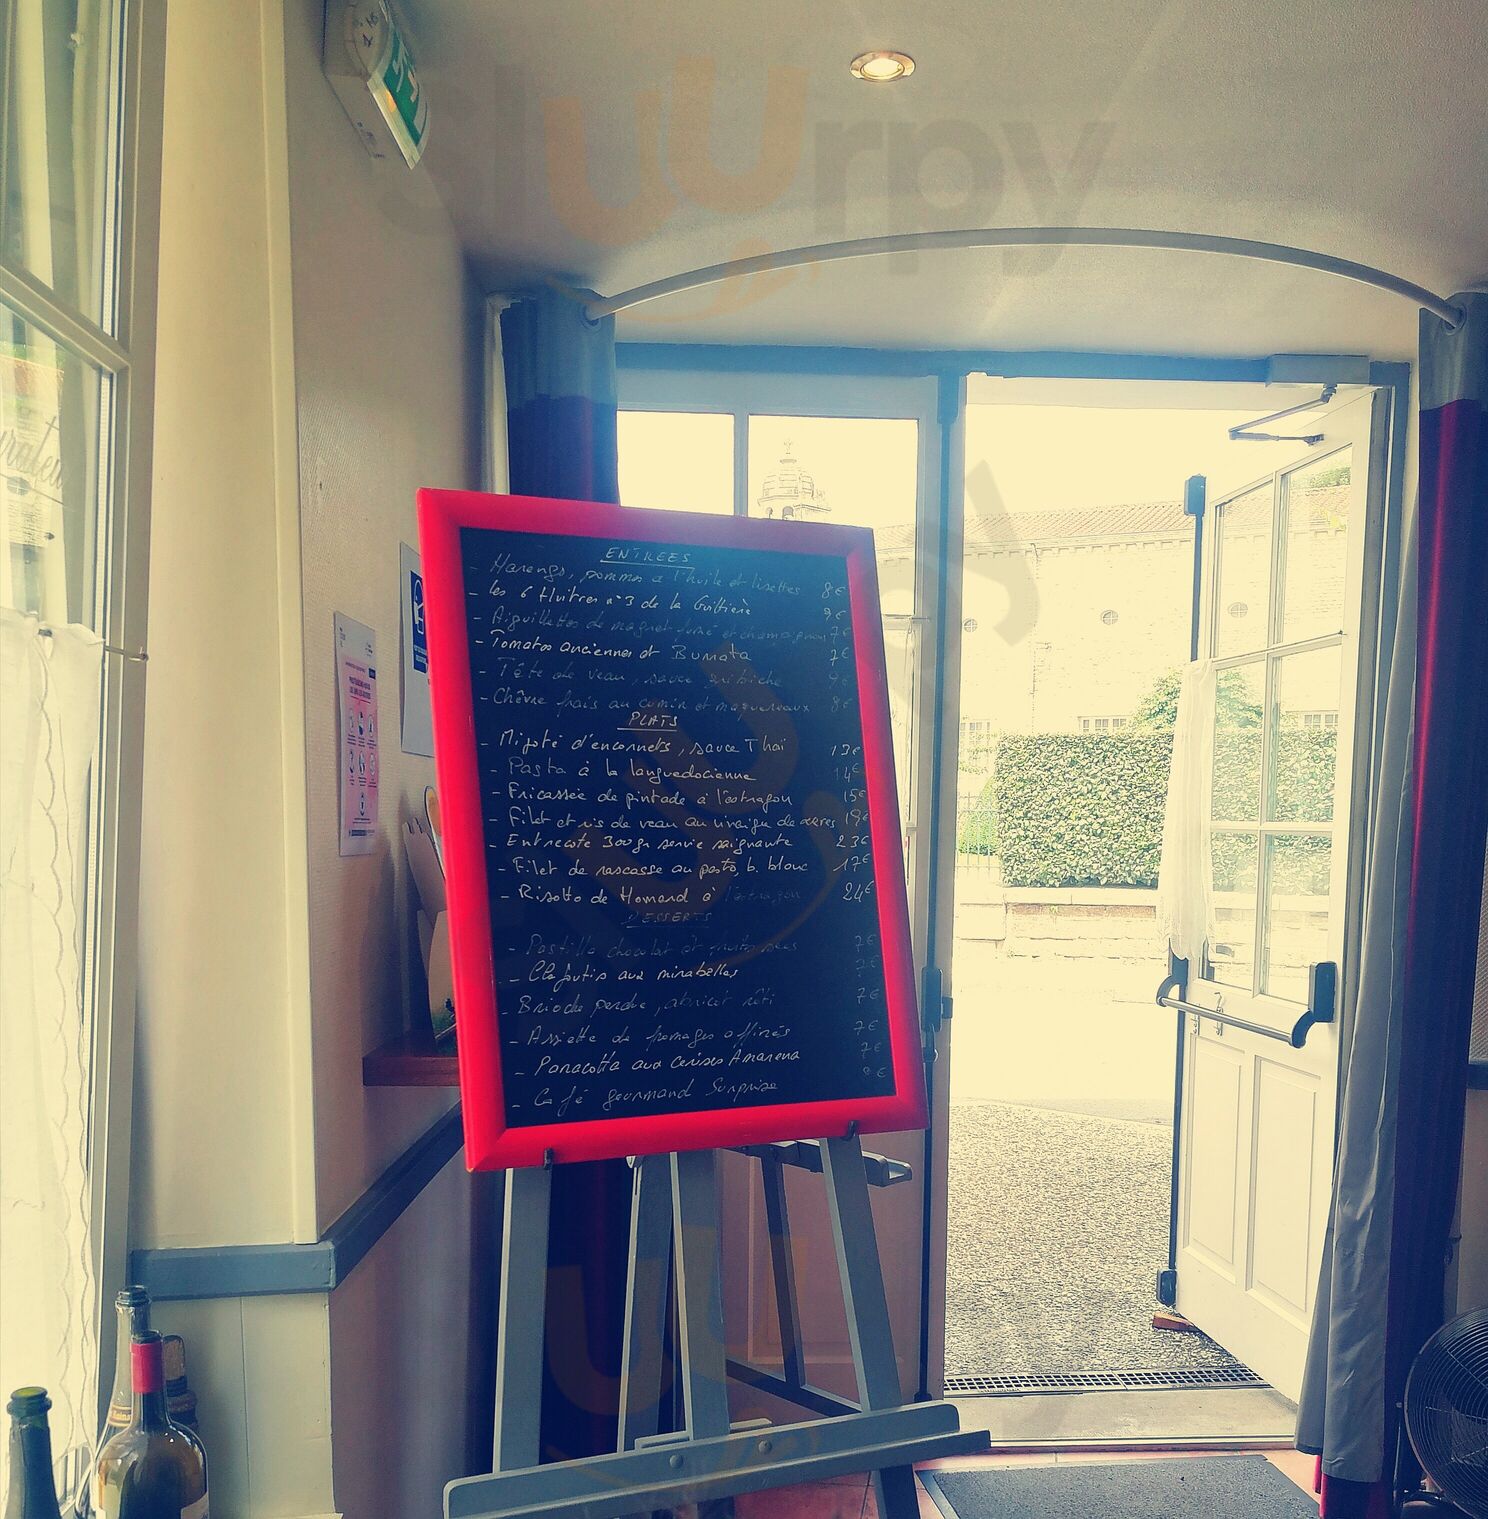 sluurpy
ENTREES
- Harengs, pommes a l'huile et lisettes 8€
- Les 6 Huitres n°3 de la Guittière 9€
- Aiguillettes de magret fumé et champignons 7€
- Tomates anciennes et Burrata 7€
- Tête de veau, sauce gribiche 9€
- Chèvre frais au cumin et maquereaux 8€
PLATS
- Mijoté d'encornets, sauce Thaï 13€
- Pasta à la languedocienne 14€
- Fricassée de pintade à l'estragon 15€
- Filet et ris de veau au vinaigre de xeres 19€
- Entrecote 300gr servie saignante 23€
- Filet de rascasse au pesto, b. blanc 17€
- Risotto de Homard à l'estragon 24€
DESSERTS
- Pastilla chocolat et fruits secs 7€
- Clafoutis aux mirabelles 7€
- Brioche perdue, abricot rôti 7€
- Assiette de fromages affinés 7€
- Panacotta aux cerises Amarena 7€
- Café gourmand Surprise 8€